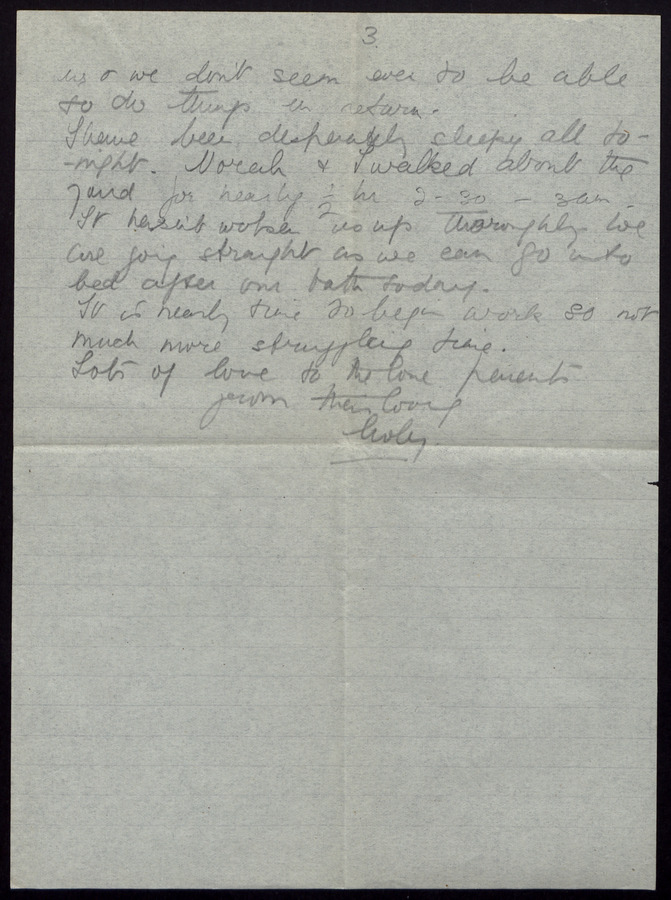 3.
us & we don't seem ever to be able
to do things in return.
I have been desperately sleepy all to-
-night. Norah & I walked about the
yard for nearly ½ hr 2-30 - 3am.
It hasn't woken us up thoroughly. We
are going straight as we can go into
bed after our bath today.
It is nearly time to begin work so not
much more struggling time.
Lots of love to the parents
from their loving